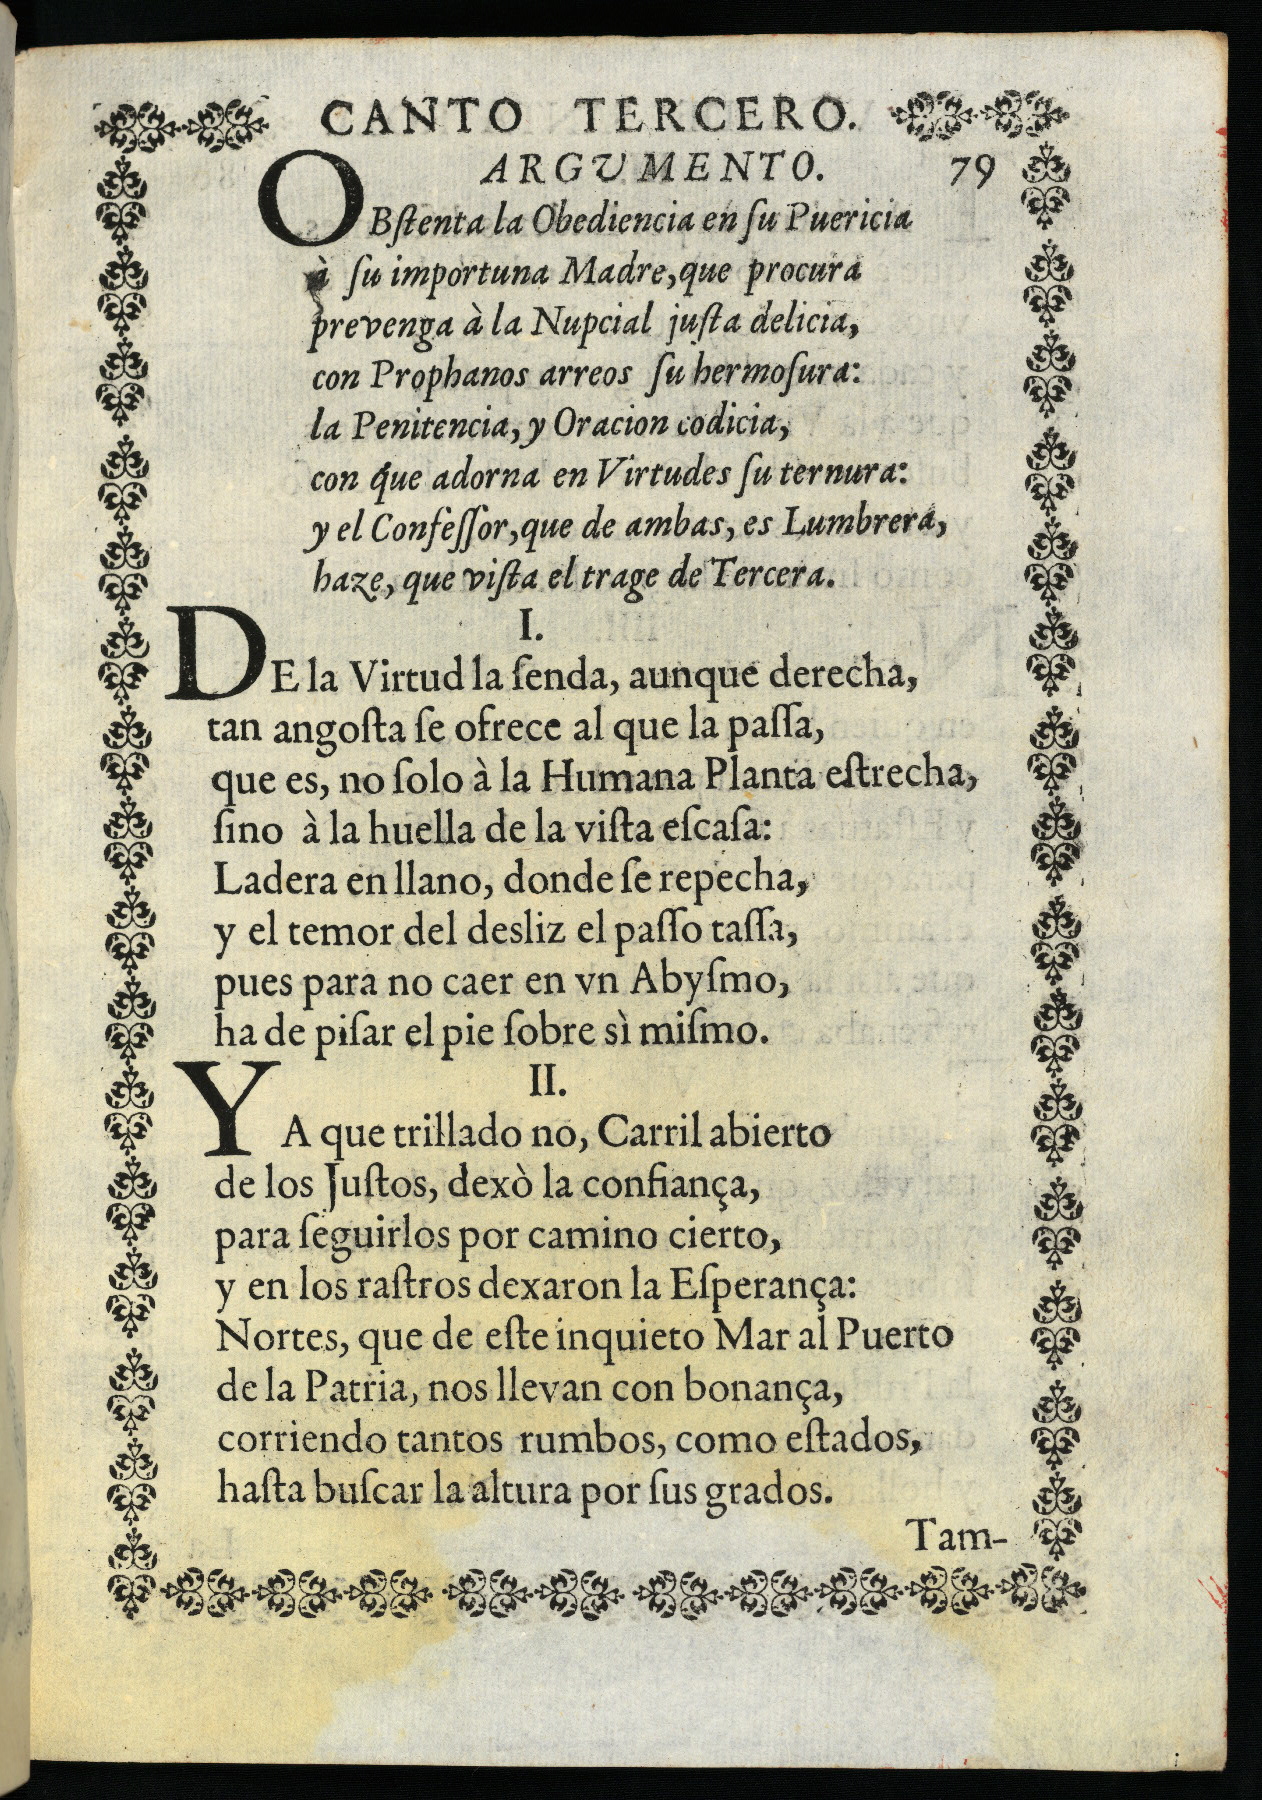 CANTO TERCERO.
ARGVMENTO. 79
OBſtenta la Obediencia en ſu Puericia
à ſu importuna Madre, que procura
prevenga à la Nupcial juſta delicia,
con Prophanos arreos ſu hermoſura:
la Penitencia, y Oracion codicia,
con que adorna en Virtudes ſu ternura:
y el Confeſſor, que de ambas, es Lumbrera,
haze, que viſta el trage de Tercera.
I.
DE la Virtud la ſenda, aunque derecha,
tan angoſta ſe ofrece al que la paſſa,
que es, no ſolo à la Humana Planta eſtrecha,
ſino à la huella de la viſta eſcaſa:
Ladera en llano, donde ſe repecha,
y el temor del desliz el paſſo taſſa,
pues para no caer en vn Abyſmo,
ha de piſar el pie ſobre sì miſmo.
II.
YA que trillado no, Carril abierto
de los Juſtos, dexò la confiança,
para ſeguirlos por camino cierto,
y en los raſtros dexaron la Eſperança:
Nortes, que de eſte inquieto Mar al Puerto
de la Patria, nos llevan con bonança,
corriendo tantos rumbos, como eſtados,
haſta buſcar la altura por ſus grados.
Tam-